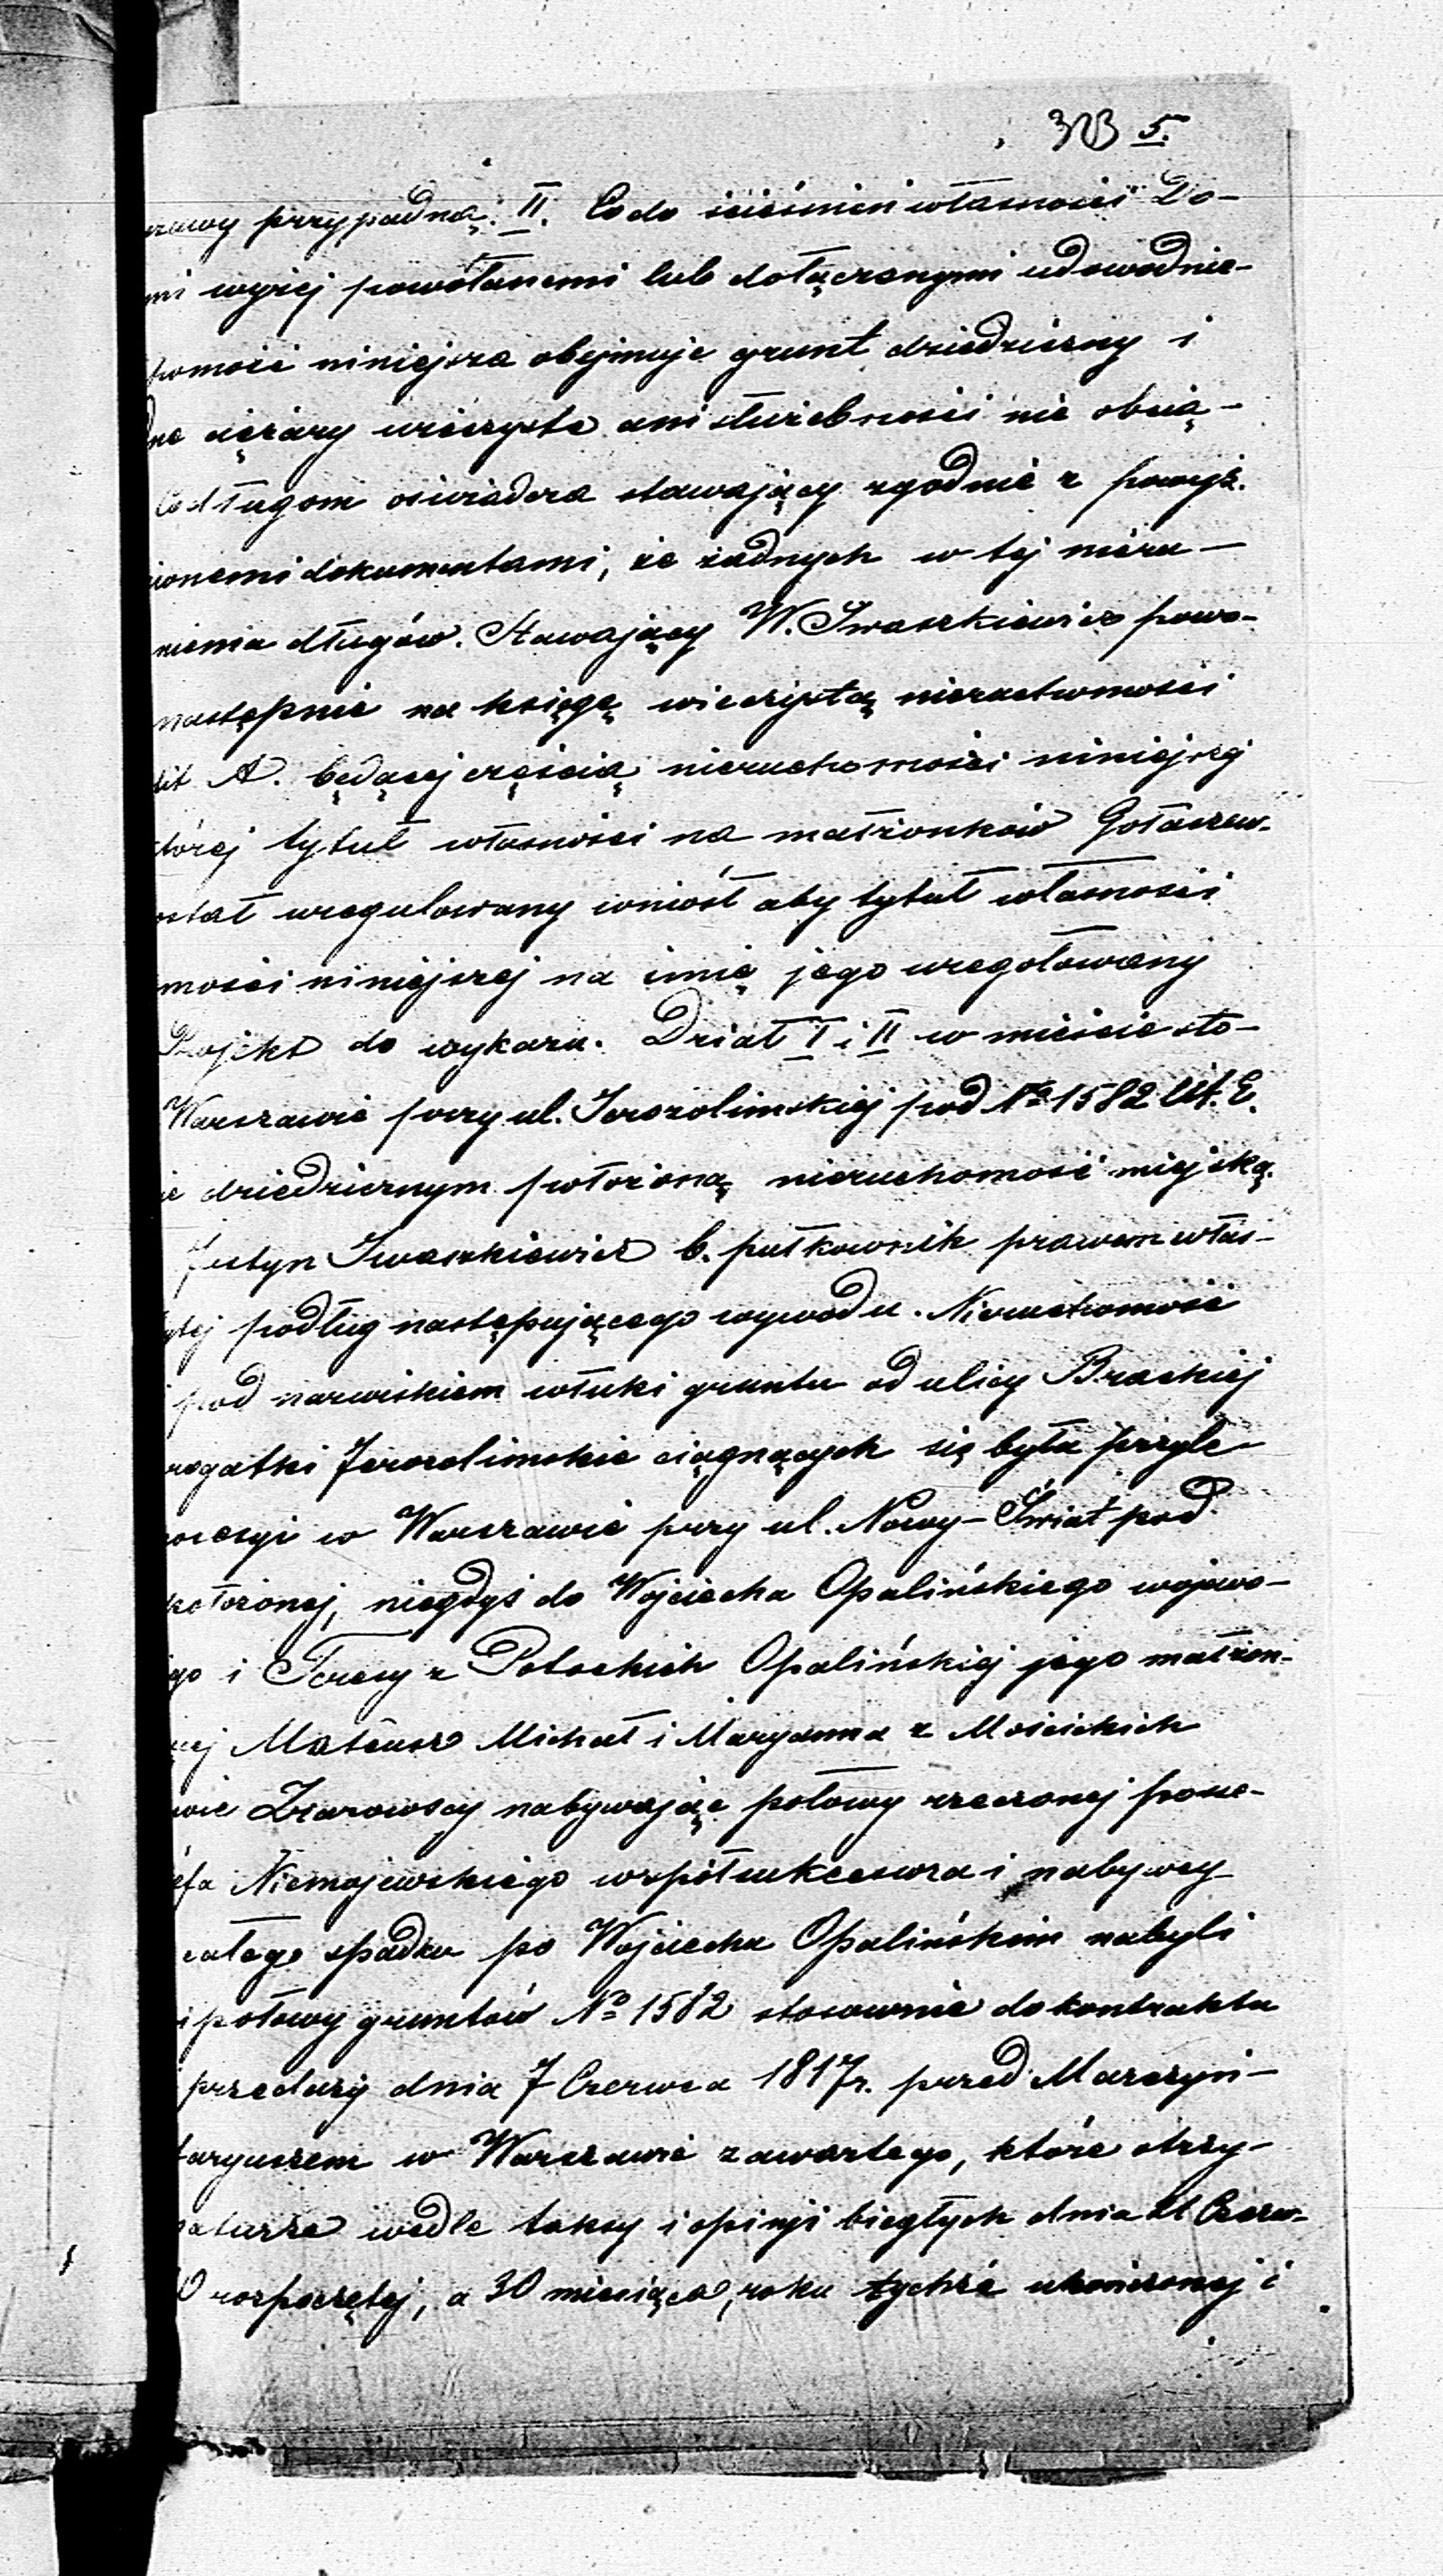 323 5.
rawy przypadną. II. Co do ścieśnień własności Do-
mi wyżej powołanemi lub dołączonymi udowodnie-
homość niniejsza obejmuje grunt dziedziczny i
dne ciężary wieczyste ani służebności nie obcią-
Co długom oświadcza stawający zgodnie z powyż.
ionemi dokumentami, że żadnych w tej nieru-
nienia długów. Stawający W. Iwaszkiewicz powo-
następnie na księgę wieczystą nieruchomości
lit A. będącej częścią nieruchomości niniejszej
tórej tytuł własności na małżonków Gołaszew-
ostał uregulowany wniósł aby tytuł własności
mości niniejszej na imię jego uregolowany
Projekt do wykazu. Dział I i II w mieście sto-
Warszawie przy ul. Jerozolimskiej pod No 1582 Lit. E.
ie dziedzicznym położoną nieruchomość miejską.
Justyn Iwaszkiewicz b. pułkownik prawem włas-
ytej podług następującego wywodu. Nieruchomość
pod nazwiskiem włuki gruntu od ulicy Brackiej
rogatki Jerozolimskie ciągnących się była przyle-
ssesyi w Warszawie przy ul. Nowy-Świat pod
położonej, niegdyś do Wojciecha Opalińskiego wojewo-
go i Teresy z Potockich Opalińskiej jego małżon-
cej Mateusz Michał i Maryanna z Mościckich
wie Żarowscy nabywając połowy rzeczonej posse-
efa Niemojewskiego współsukcessora i nabywcy
całego spadku po Wojciechu Opalińskim nabyli
i połowy gruntów No 1582 stosownie do kontraktu
przedaży dnia 7 Czerwca 1817 r. przed Marczyń-
taryuszem w Warszawie zawartego, które otrzy-
naturze wedle taksy i opinji biegłych dnia 21 Czerw-
0 rozpoczętej, a 30 miesiąca, roku tychże ukończonej i